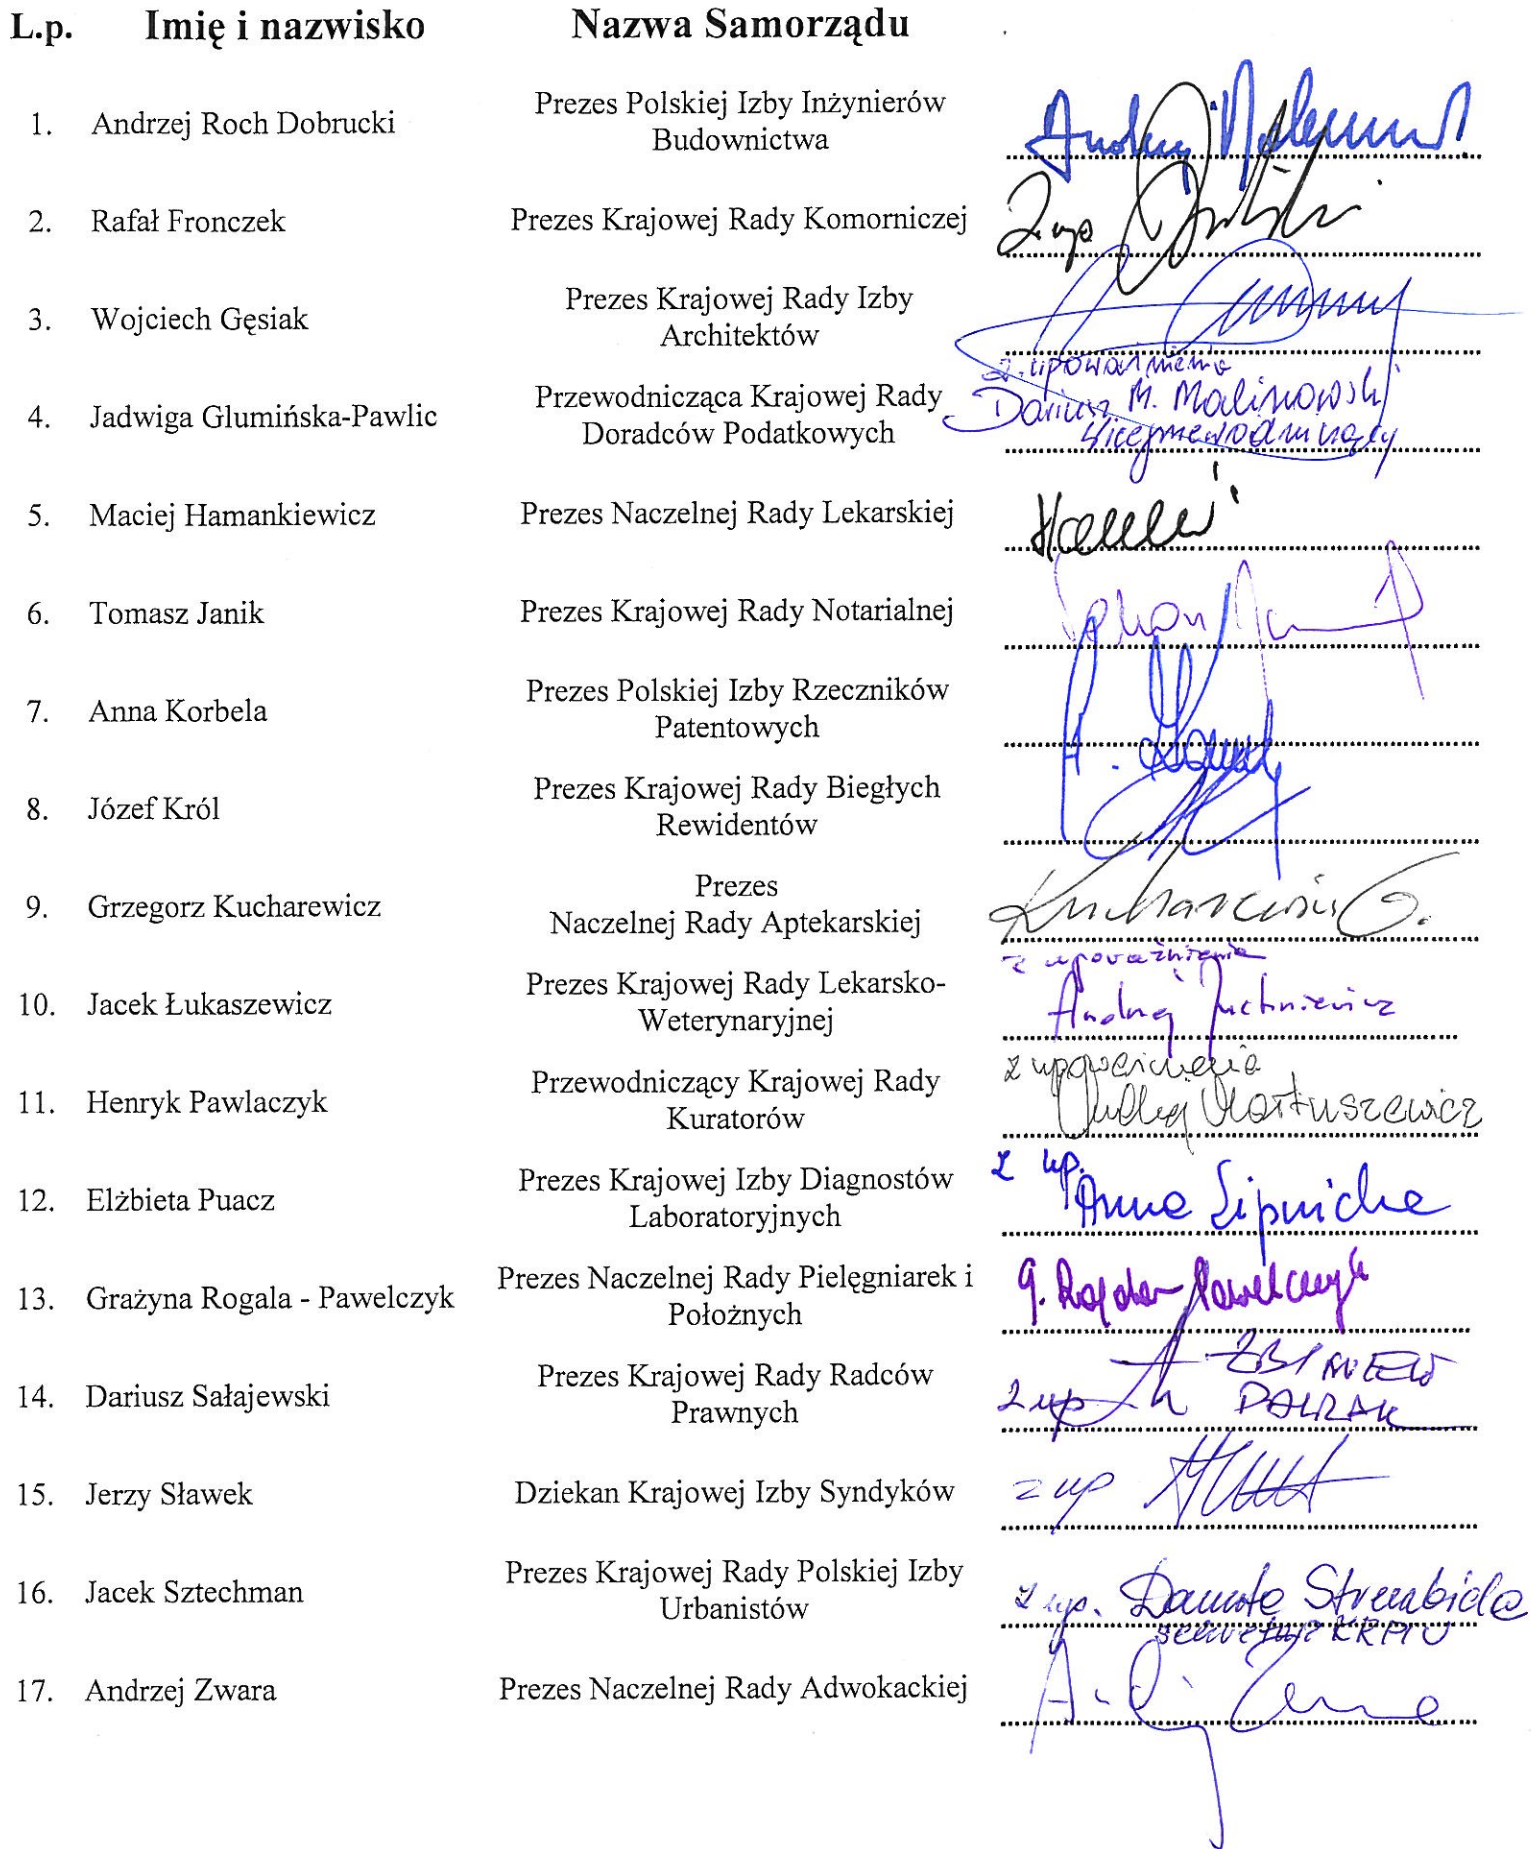 L.p. Imię i nazwisko Nazwa Samorządu
1. Andrzej Roch Dobrucki Prezes Polskiej Izby Inżynierów
Budownictwa
2. Rafał Fronczek Prezes Krajowej Rady Komorniczej
z up.
3. Wojciech Gęsiak Prezes Krajowej Rady Izby
Architektów
z upoważnienia
4. Jadwiga Glumińska-Pawlic Przewodnicząca Krajowej Rady
Doradców Podatkowych
Dariusz M. Malinowski
Wiceprzewodniczący
5. Maciej Hamankiewicz Prezes Naczelnej Rady Lekarskiej
6. Tomasz Janik Prezes Krajowej Rady Notarialnej
7. Anna Korbela Prezes Polskiej Izby Rzeczników
Patentowych
8. Józef Król Prezes Krajowej Rady Biegłych
Rewidentów
9. Grzegorz Kucharewicz Prezes
Naczelnej Rady Aptekarskiej
Kucharewicz G.
z upoważnienia
10. Jacek Łukaszewicz Prezes Krajowej Rady Lekarsko-
Weterynaryjnej
Andrzej Juchniewicz
z upoważnienia
11. Henryk Pawlaczyk Przewodniczący Krajowej Rady
Kuratorów
Andrzej Martuszewicz
12. Elżbieta Puacz Prezes Krajowej Izby Diagnostów
Laboratoryjnych
z up.
Anna Lipnicka
13. Grażyna Rogala - Pawelczyk Prezes Naczelnej Rady Pielęgniarek i
Położnych
G. Rogala-Pawelczyk
14. Dariusz Sałajewski Prezes Krajowej Rady Radców
Prawnych
z up ZBIGNIEW
PAWLAK
15. Jerzy Sławek Dziekan Krajowej Izby Syndyków z up
16. Jacek Sztechman Prezes Krajowej Rady Polskiej Izby
Urbanistów
z up. Danuta Strembicka
sekretarz KRPIU
17. Andrzej Zwara Prezes Naczelnej Rady Adwokackiej